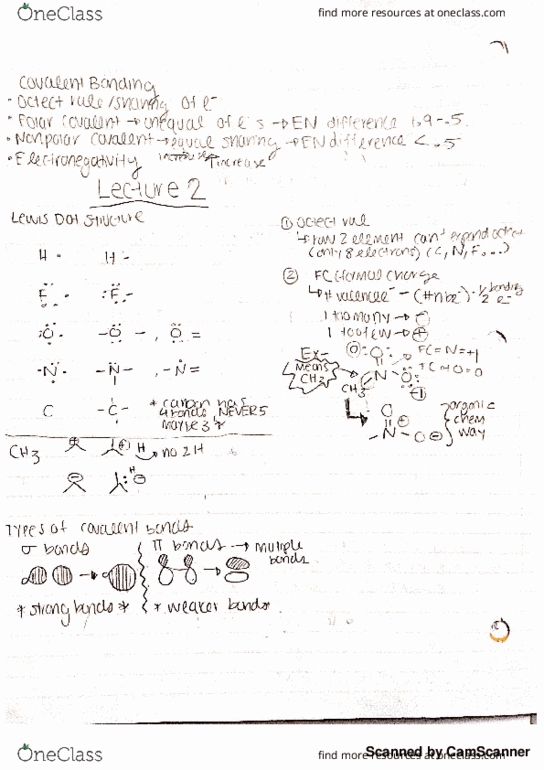 OneClass
find more resources at oneclass.com
Covalent Bonding
• Octect rule/sharing of e-
• Polar covalent → unequal of e-s → EN difference 1.9-.5
• Nonpolar covalent → equal sharing → EN difference < .5
• Electronegativity increase ↑ increase
Lecture 2
LEWIS DOT Structure
H· H-
:F· :F-
·O· -O- , O=
·N· -N- , -N=
C -C- * carbon has
4 bonds, NEVER 5
maybe 3 *
CH3 H no 2H
H
① octect rule
↳ row 2 element can't expand octect
(only 8 electrons) (C, N, F...)
② FC (formal charge)
↳ # valence e- - (# nb e-) - 1/2 bonding e-
1 too many → ⊖
1 too few → ⊕
Ex-
Means CH3
CH3 N O O
FC=N=+1
FC=O=0
-1
O
-N-O⊖
organic
chem
way
Types of covalent bonds
σ bonds
* strong bonds *
π bonds → multiple
bonds
* weaker bonds.
OneClass
find more resources at oneclass.com
Scanned by CamScanner